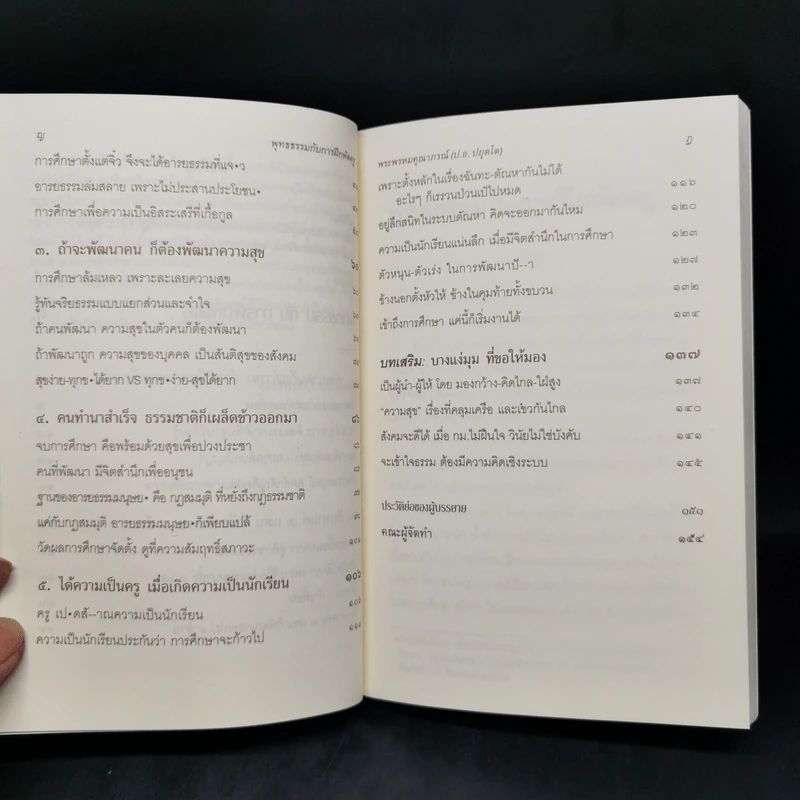 ญ
พุทธธรรมกับการฝึกหัดครู
การศึกษาตั้งแต่จิ๋ว จึงจะได้อารยธรรมที่แจ•ว
อารยธรรมล่มสลาย เพราะไม่ประสานประโยชน•
การศึกษาเพื่อความเป็นอิสระเสรีที่เกื้อกูล
๓. ถ้าจะพัฒนาคน ก็ต้องพัฒนาความสุข
การศึกษาล้มเหลว เพราะละเลยความสุข
รู้ทันจริยธรรมแบบแยกส่วนและจำใจ
ถ้าคนพัฒนา ความสุขในตัวคนก็ต้องพัฒนา
ถ้าพัฒนาถูก ความสุขของบุคคล เป็นสันติสุขของสังคม
สุขง่าย-ทุกข•ได้ยาก VS ทุกข•ง่าย-สุขได้ยาก
๔. คนทำนาสำเร็จ ธรรมชาติก็เผล็ดข้าวออกมา
จบการศึกษา คือพร้อมด้วยสุขเพื่อปวงประชา
คนที่พัฒนา มีจิตสำนึกเพื่ออนุชน
ฐานของอารยธรรมมนุษย• คือ กฎสมมุติ ที่หยั่งถึงกฎธรรมชาติ
แค่กับกฎสมมุติ อารยธรรมมนุษย•ก็เพียบแปล้
วัดผลการศึกษาจัดตั้ง ดูที่ความสัมฤทธิ์สภาวะ ๑๐๑
๕. ได้ความเป็นครู เมื่อเกิดความเป็นนักเรียน ๑๐๖
ครู เป•ดส้--าณความเป็นนักเรียน ๑๐๖
ความเป็นนักเรียนประกันว่า การศึกษาจะก้าวไป ๑๑๑
พระพรหมคุณาภรณ์ (ป.อ. ปยุตโต)
เพราะตั้งหลักในเรื่องฉันทะ-ตัณหากันไม่ได้
อะไรๆ ก็เรรวนป่วนเป๋ไปหมด ๑๑๖
อยู่ลึกสนิทในระบบตัณหา คิดจะออกมากันไหม ๑๒๐
ความเป็นนักเรียนแน่นลึก เมื่อมีจิตสำนึกในการศึกษา ๑๒๓
ตัวหนุน-ตัวเร่ง ในการพัฒนาปั--า ๑๒๗
ข้างนอกตั้งหัวให้ ข้างในคุมท้ายทั้งขบวน ๑๓๒
เข้าถึงการศึกษา แค่นี้ก็เริ่มงานได้ ๑๓๔
บทเสริม: บางแง่มุม ที่ขอให้มอง ๑๓๗
เป็นผู้นำ-ผู้ให้ โดย มองกว้าง-คิดไกล-ใฝ่สูง ๑๓๗
“ความสุข” เรื่องที่คลุมเครือ และเขวกันไกล ๑๔๐
สังคมจะดีได้ เมื่อ กม.ไม่ฝืนใจ วินัยไม่ใช่บังคับ ๑๔๑
จะเข้าใจธรรม ต้องมีความคิดเชิงระบบ ๑๔๕
ประวัติย่อของผู้บรรยาย ๑๕๑
คณะผู้จัดทำ ๑๕๔